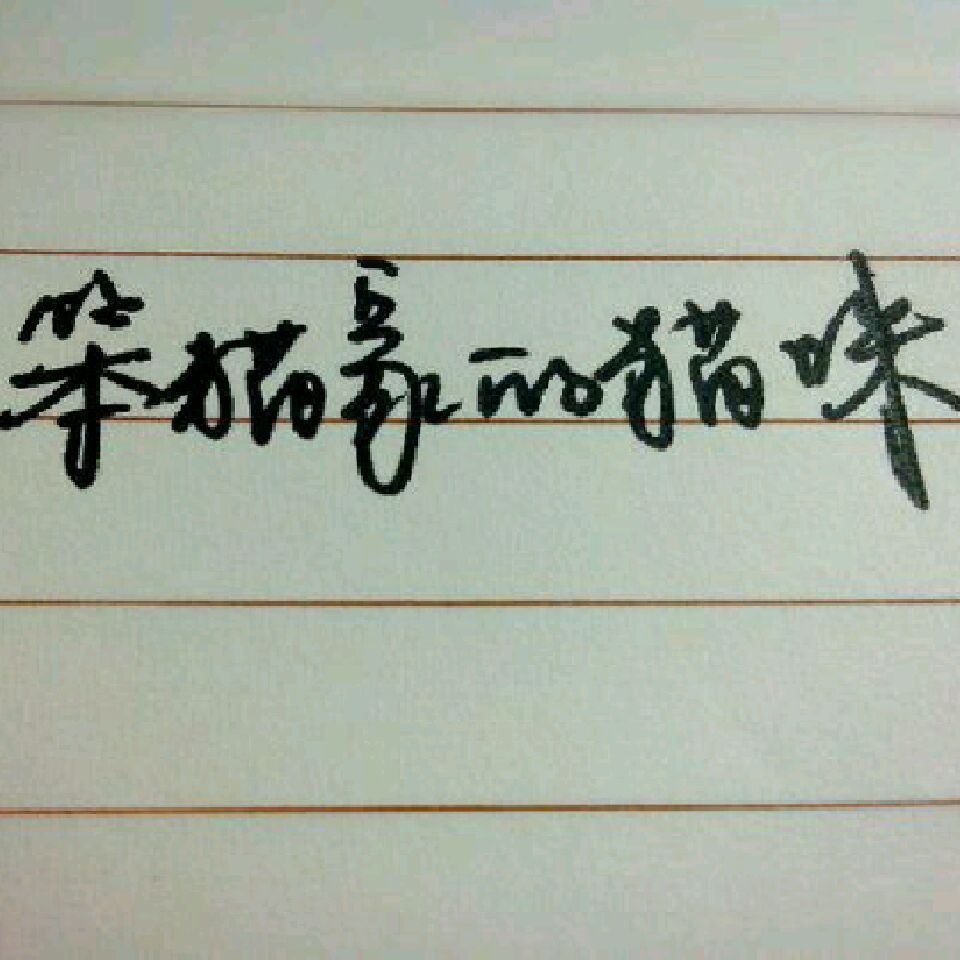 笨猫哥的猫咪